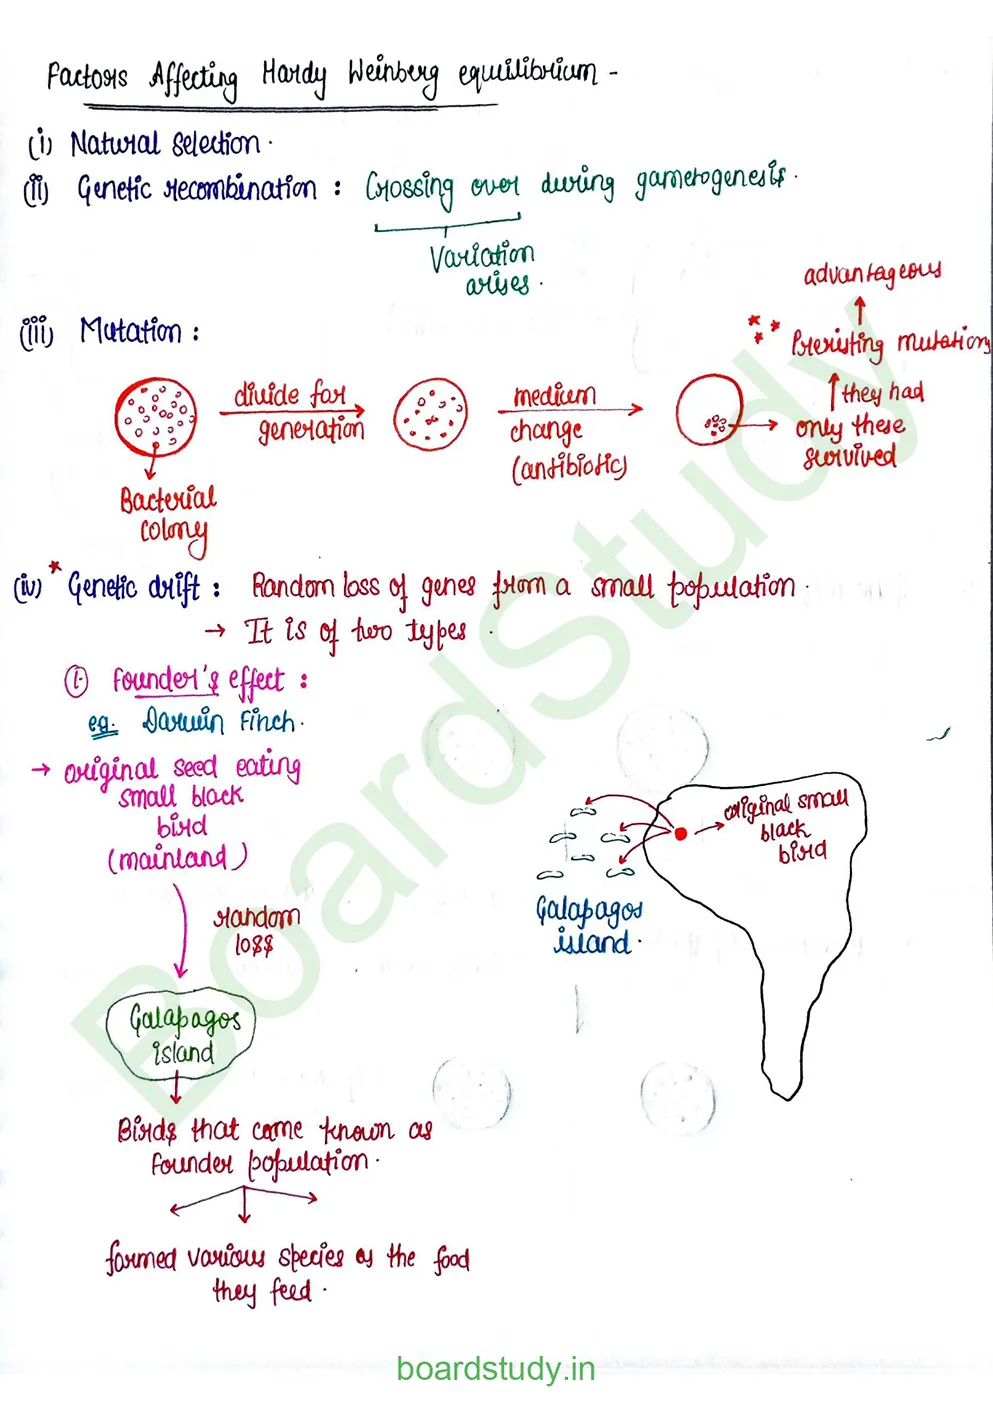 Factors Affecting Hardy Weinberg equilibrium -
(i) Natural selection.
(ii) Genetic recombination : Crossing over during gametogenesis.
Variation
arises.
advantageous
(iii) Mutation :
Preexisting mutation
divide for
generation
medium
change
(antibiotic)
they had
only these
survived
Bacterial
colony
(iv) * Genetic drift : Random loss of genes from a small population.
→ It is of two types.
① Founder's effect :
eg. Darwin Finch.
→ original seed eating
small black
bird
(mainland)
original small
black
bird
Galapagos
island.
random
loss
Galapagos
island
Birds that come known as
founder population.
formed various species as the food
they feed.
BoardStudy
boardstudy.in